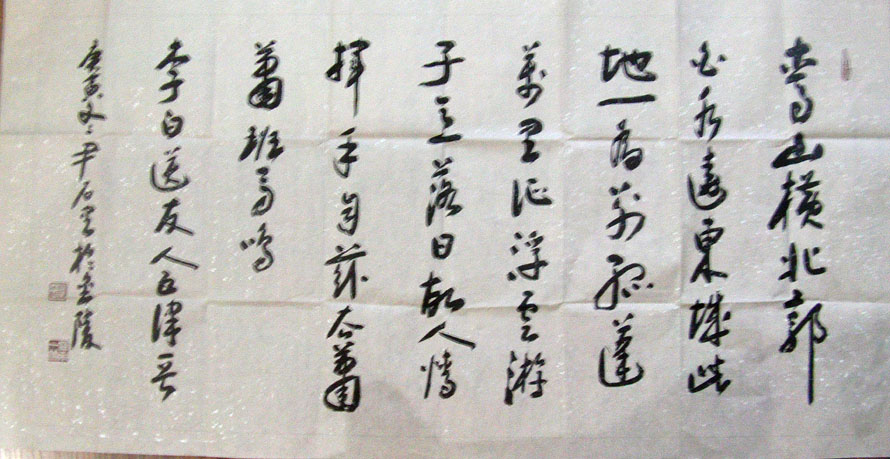 青山横北郭
白水遶東城此
地一為别孤蓬
萬里征浮雲游
子意落日故人情
揮手自茲去蕭
蕭班馬鳴
李白送友人五律一首
庚寅冬尹石書於金陵